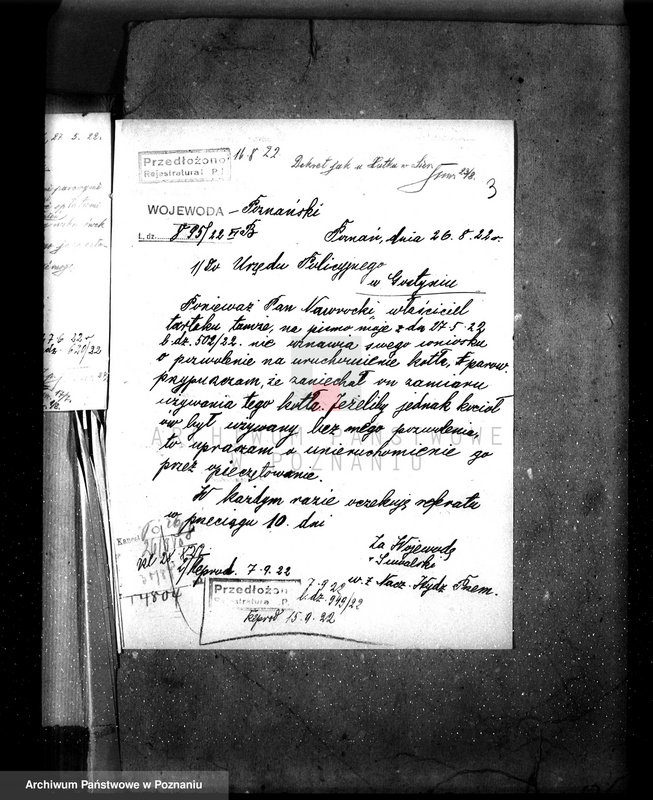 27 5. 22.
Przedłożono
Rejestratura P I
16.8 22
3
WOJEWODA Poznański
L. dz. 895/22 B
Poznań, dnia 26.8.22 r.
1/ Do Urzędu Policyjnego
w Gostyniu
Ponieważ Pan Nawrocki, właściciel
tartaku tamże, na pismo moje z dn 27.5.22
L. dz. 502/22. nie wnawia swego wniosku
o pozwolenie na uruchomienie kotła, parow.
przypuszczam, że zaniechał on zamiaru
używania tego kotła. Jeżeliby jednak kocioł
ów był używany bez mego pozwolenia,
to upraszam o unieruchomienie go
przez opieczętowanie.
W każdym razie oczekuję referatu
w przeciągu 10. dni
Za Wojewodę
w. z Nacz. Wydz Przem.
Kancel
Reprod. 7.9.22
14804
Przedłożono
Rejestratura P.
7.9 22
L. dz. 949/22
Reprod 15.9.22
ARCHIWUM PAŃSTWOWE
W POZNANIU
Archiwum Państwowe w Poznaniu